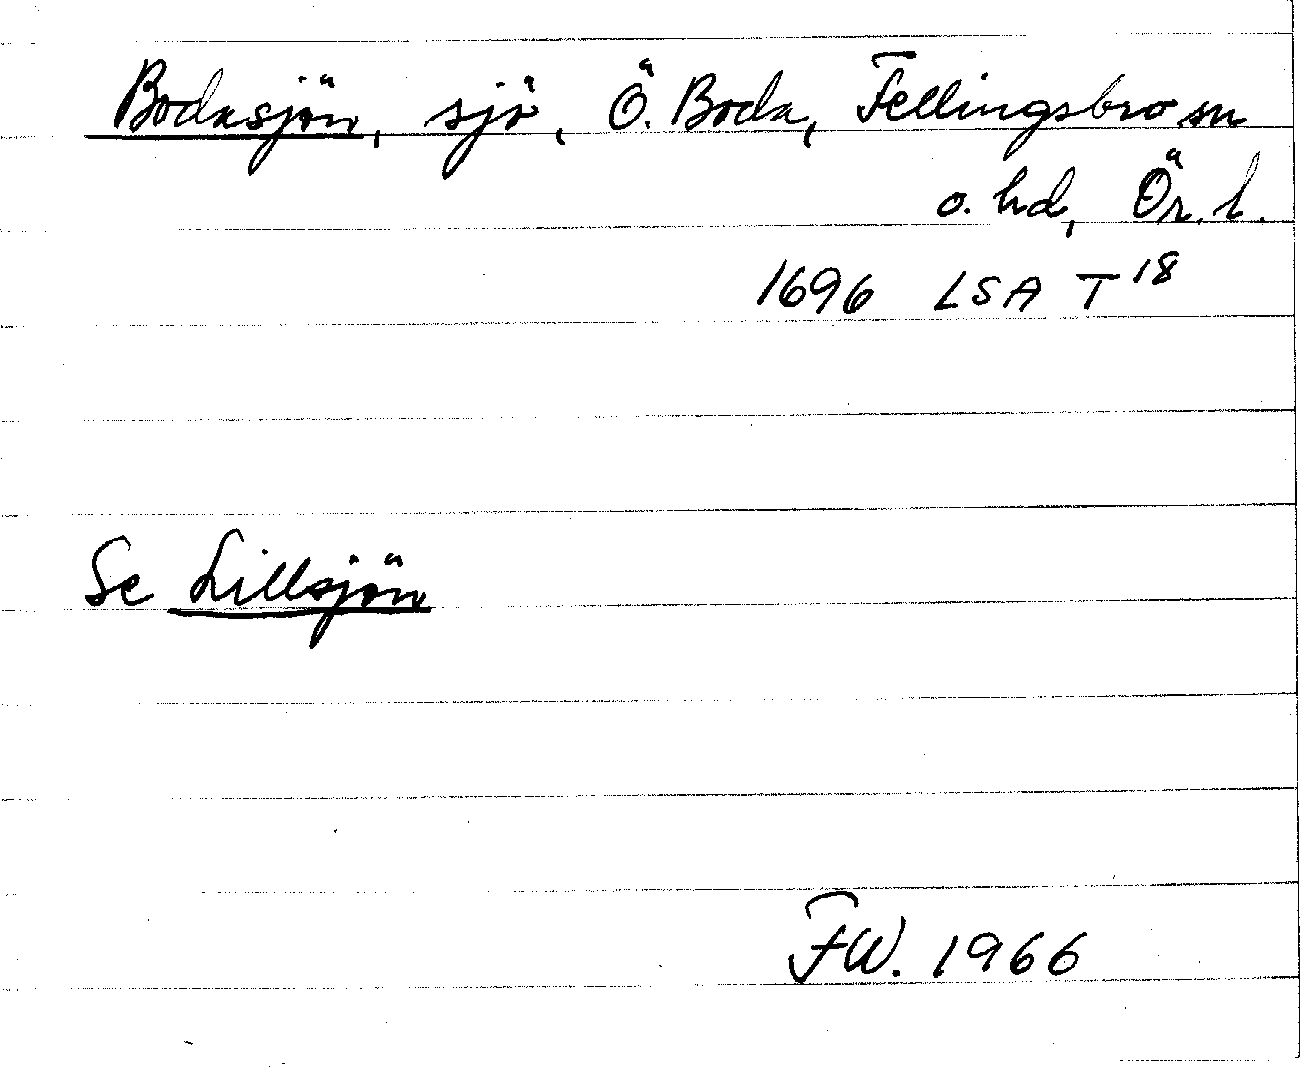 Bodasjön, sjö, Ö. Boda, Fellingsbro sn
o. hd, Ör. l.
1696 LSA T 18
Se Lillsjön
FW. 1966